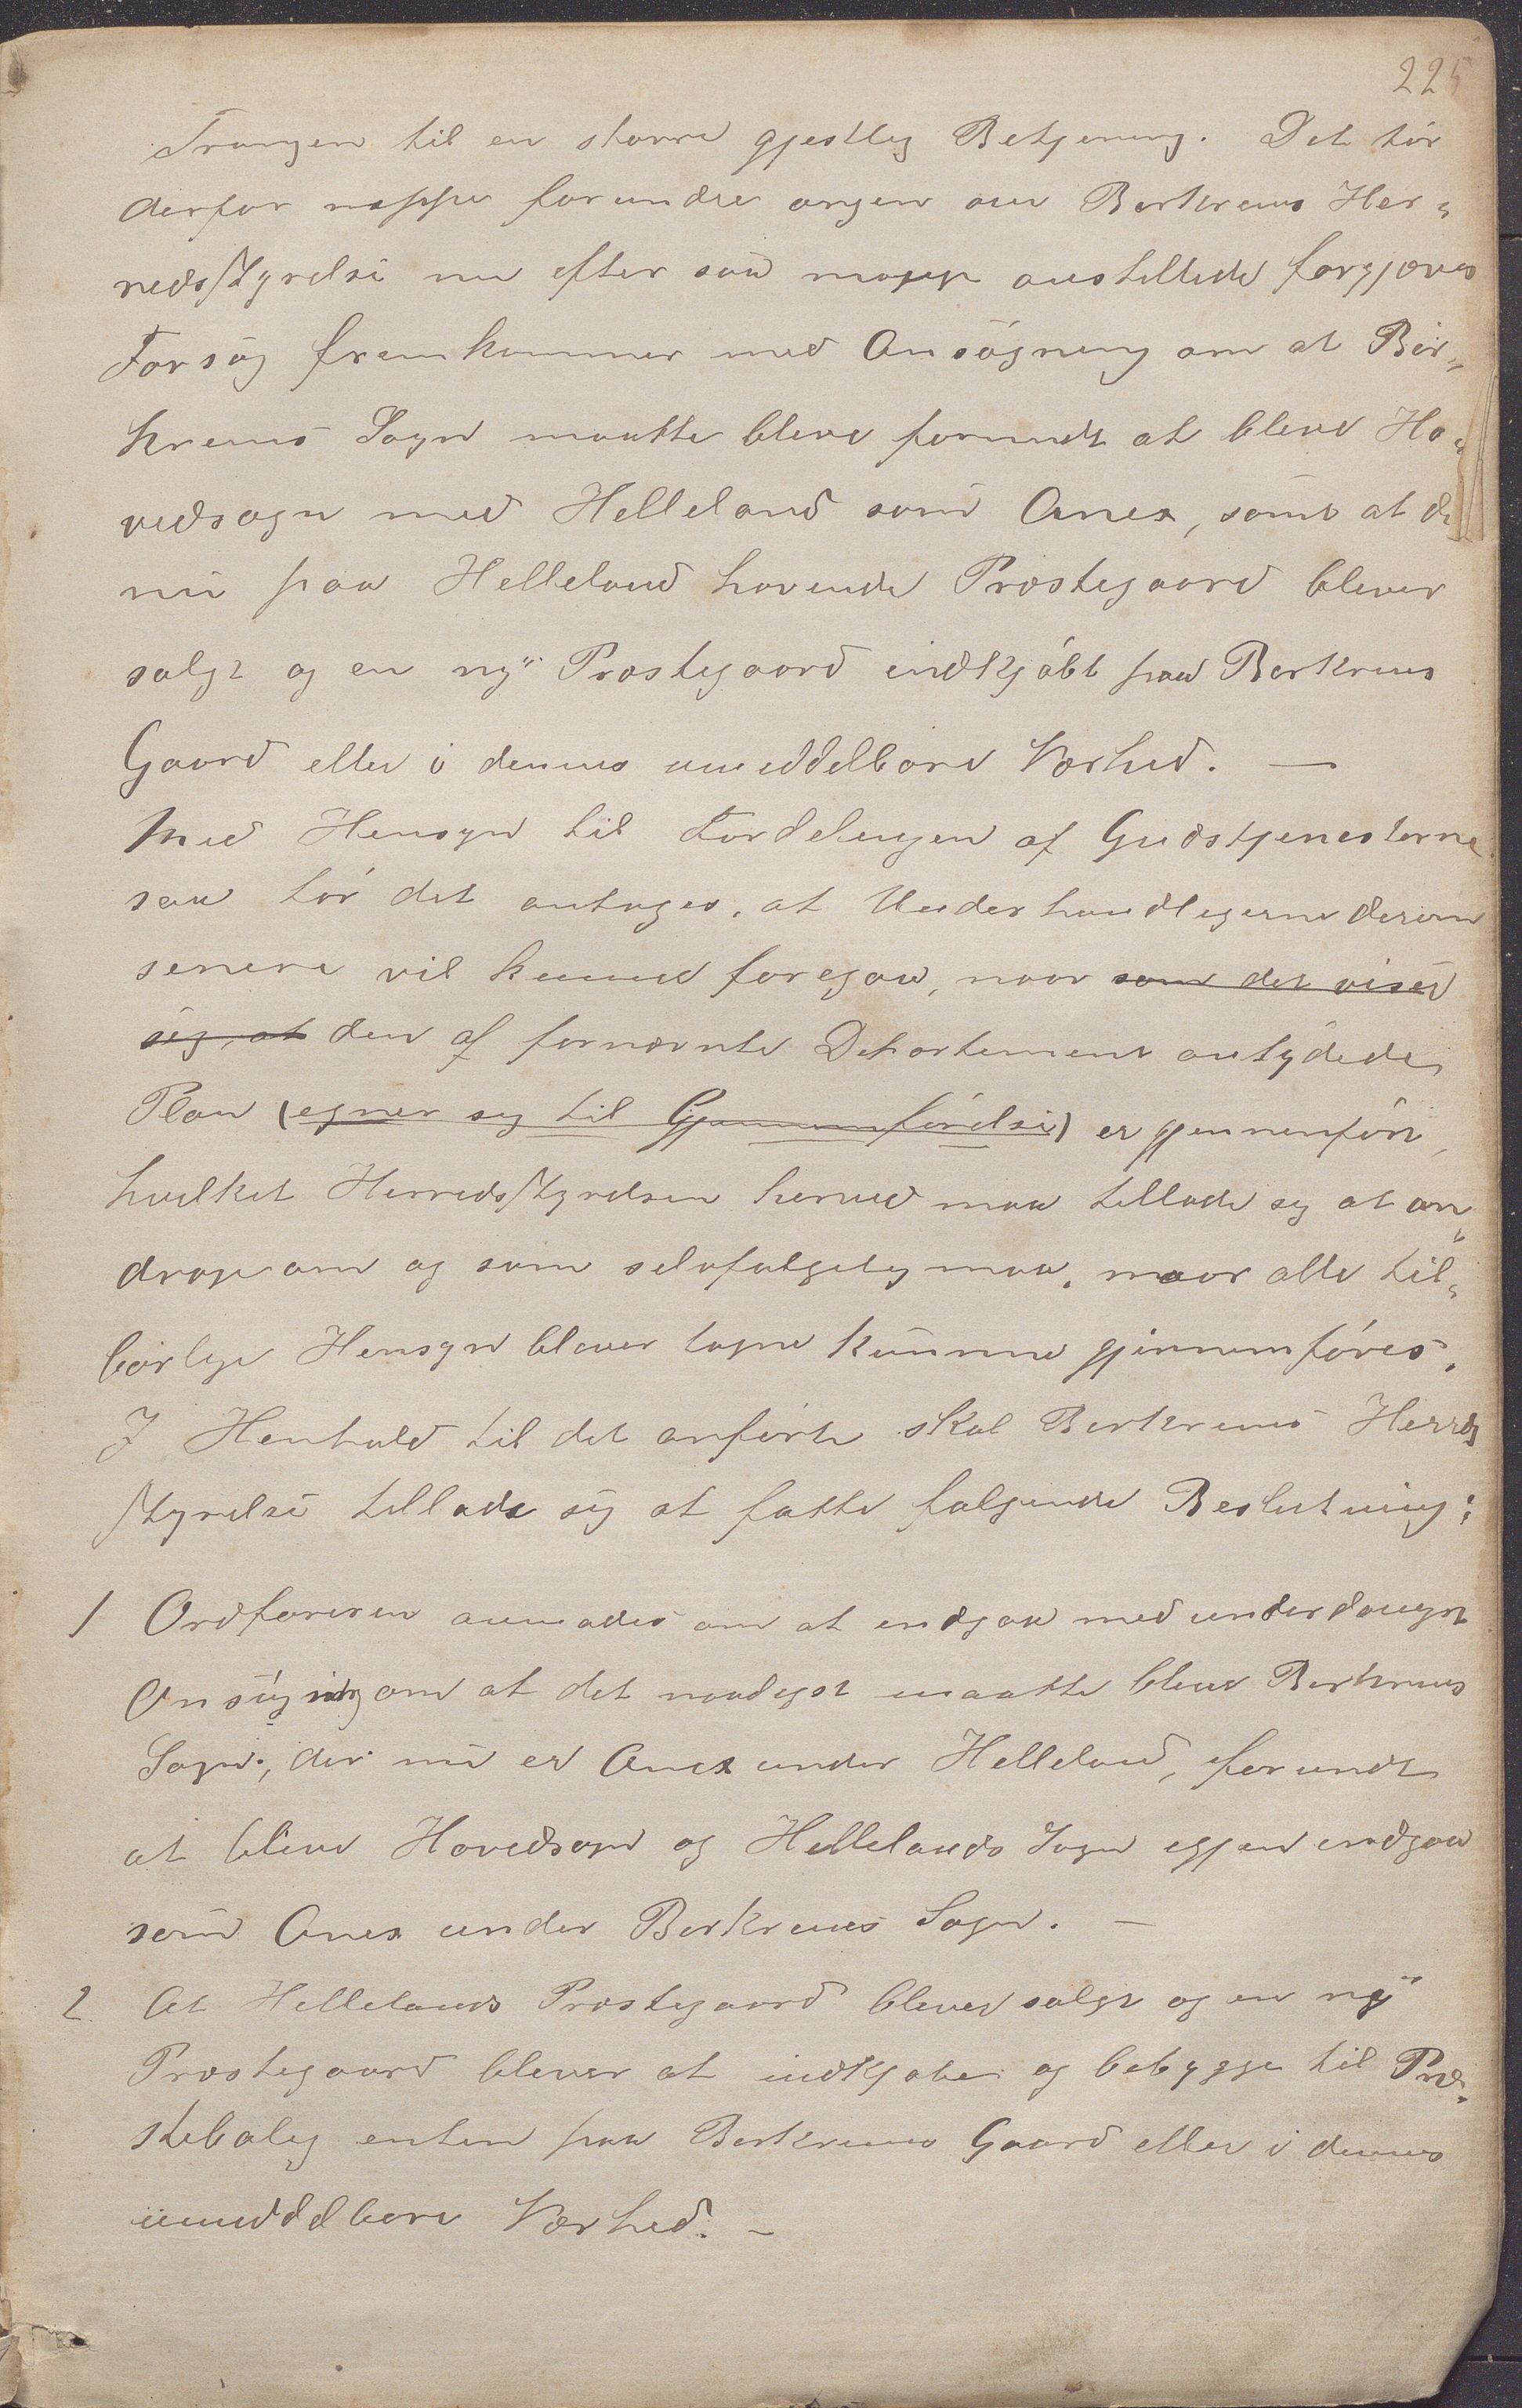 225
Trangen til en større gjestlig Betjening. Det tör
derfor neppe forundre angen om Berkrems Her„
redsstyrelse nu efter saa mange anstillede forgjæves
Forsög fremkommer med Ansögning om at Bir„
krems Sogn maatte blive forundt at blive Ho„
vedsogn med Helleland som Anex, samt at de
nu paa Helleland havende Præstegaard bliver
solgt og en ny Præstegaard indkjöbt paa Berkrems
Gaard eller i dennes umiddelbare Nærhed. —
Med Hensyn til Fordelingen af Gudstjenesterne
saa tör det antages, at Underhandlegerne derom
senere vil kunne foregaa, naar som det viser
sig, at den af fornævnte Departement antydede
Plan (egner sig til Gjennemförelse) er gjennemfört,
hvilket Herredsstyrelsen herved maa tillade sig at an„
drage om og som selvfølgelig maa, naar alle til„
børlige Hensyn bliver tagne kunne gjennemföres.
I Henhold til det anförte skal Berkrems Herreds
styrelse tillade sig at fatte følgende Beslutning:
1 Ordføreren anmodes om at indgaa med underdanigst
Ansögning om at det naadigst maatte blive Berkrems
Sogn, der nu er Anex under Helleland, forundt
at blive Hovedsogn og Hellelands Sogn igjen indgaa
som Anex under Berkrems Sogn. —
2. At Hellelands Præstegaard bliver solgt og en ny
Præstegaard bliver at indkjøbe og bebygge til Præ„
stebolig enten paa Berkrems Gaard eller i dennes
umiddelbare Nærhed. —